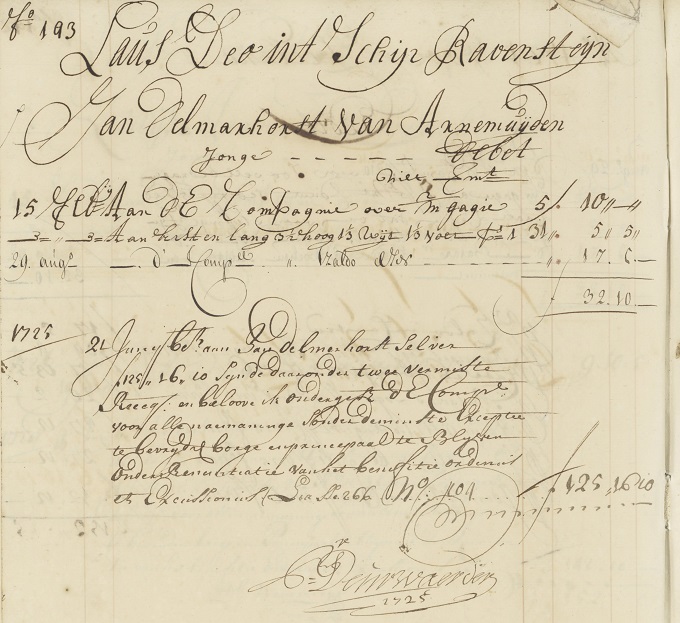 Fo 193
Laus Deo int Schip Ravensteyn
Jan Delmanhorst van Arnemuyden
Jonge - - - - - Debet
15 Feb. Aan D E Compagnie over 2/m gagie 5 f. 10,, -,,
3 Aan kisten lang 3 hoog 1½ wijt 1½ voet 1 31,, 5,, 3,,
29. augs - d' Compe ,, Zaldo ,, 17. 6. -
32. 10. -
1725
21 Junij bet. aan Jan Delmerhorst selver
f 125,, 16,, 10 Synde daaronder twee vermiste
Reecq. en beloove ik ondergesz. d E Compe.
voor alle naemaninge sonder de minste Exceptie
te bevryde borge en princepaal te Blyven
onder Renuntiatie van het benefitie ordinis
et Excussionis 266 No. 404 . . . . f 125,, 16,, 10
Deurwaerder
1725